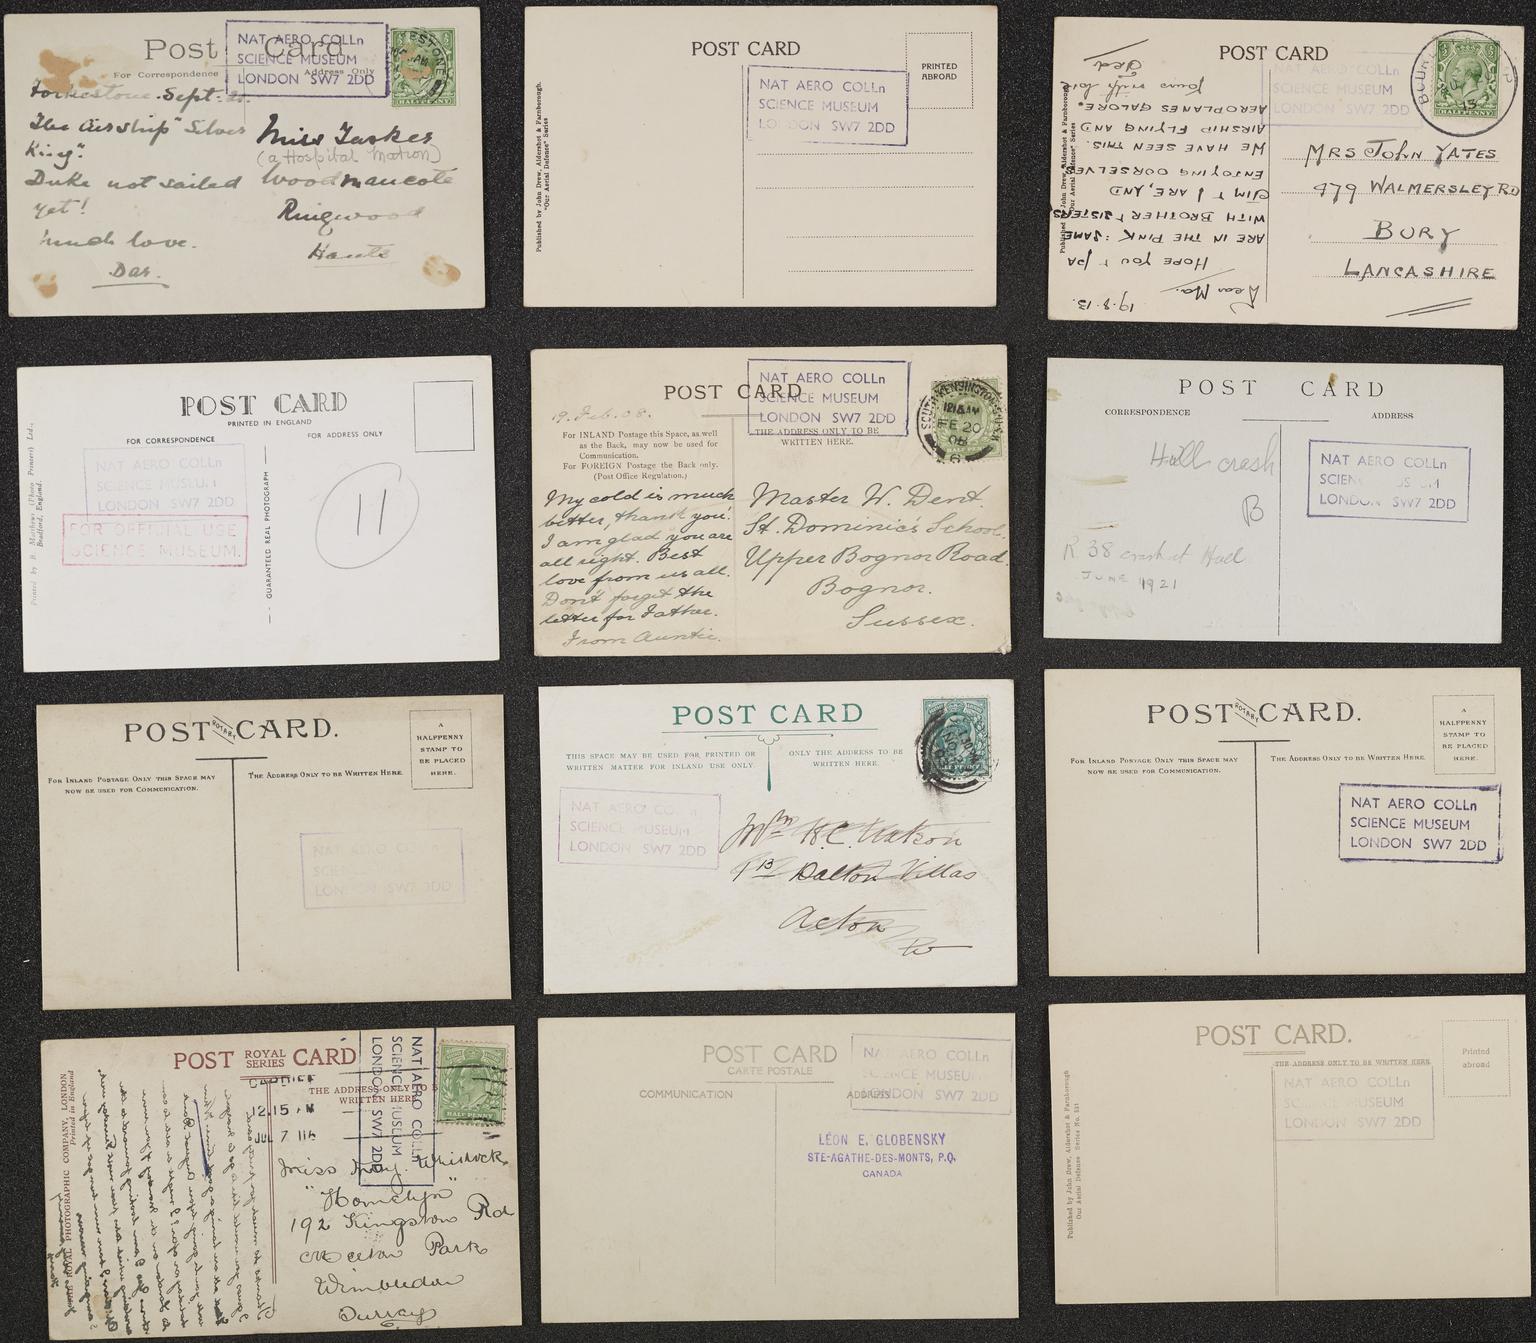 Post Card
For Correspondence
Address Only
NAT AERO COLLn
SCIENCE MUSEUM
LONDON SW7 2DD
Folkestone. Sept. 2
The airship "Silver
King".
Duke not sailed
yet!
Much love.
Das.
Miss Tasker
(a Hospital Matron)
Woodmancote
Ringwood
Hants
HALFPENNY
POST CARD
PRINTED
ABROAD
NAT AERO COLLn
SCIENCE MUSEUM
LONDON SW7 2DD
Published by John Drew, Aldershot & Farnborough.
"Our Aerial Defence" Series
POST CARD
NAT AERO COLLn
SCIENCE MUSEUM
LONDON SW7 2DD
Published by John Drew, Aldershot & Farnborough
"Our Aerial Defence" Series
19.8.13.
Dear Ma.
HOPE YOU & PA
ARE IN THE PINK: SAME
WITH BROTHER & SISTERS
JIM & I ARE, AND
ENJOYING OURSELVES
WE HAVE SEEN THIS.
AIRSHIP FLYING AND
AEROPLANES GALORE.
Yours with love
Fred.
MRS JOHN YATES
479 WALMERSLEY RD
BURY
LANCASHIRE
HALFPENNY
POST CARD
PRINTED IN ENGLAND
FOR CORRESPONDENCE
FOR ADDRESS ONLY
NAT AERO COLLn
SCIENCE MUSEUM
LONDON SW7 2DD
FOR OFFICIAL USE
SCIENCE MUSEUM.
GUARANTEED REAL PHOTOGRAPH
Printed by R. Matthews (Photo Printers) Ltd.,
Bradford, England.
11
POST CARD
NAT AERO COLLn
SCIENCE MUSEUM
LONDON SW7 2DD
19. Feb. 08.
For INLAND Postage this Space, as well
as the Back, may now be used for
Communication.
For FOREIGN Postage the Back only.
(Post Office Regulation.)
THE ADDRESS ONLY TO BE
WRITTEN HERE.
SOUTH KENSINGTON
12.15 AM
FE 20
08
My cold is much
better, thank you.
I am glad you are
all right. Best
love from us all.
Don't forget the
letter for Father.
From Auntie.
Master W. Dent.
St. Dominic's School.
Upper Bognor Road.
Bognor.
Sussex.
POST CARD
CORRESPONDENCE
ADDRESS
Hull crash
B
R 38 crash at Hull
JUNE 1921
NAT AERO COLLn
SCIENCE MUSEUM
LONDON SW7 2DD
POST ROTARY CARD.
A
HALFPENNY
STAMP TO
BE PLACED
HERE.
For Inland Postage Only this Space may
now be used for Communication.
The Address Only to be Written Here.
NAT AERO COLLn
SCIENCE MUSEUM
LONDON SW7 2DD
POST CARD
THIS SPACE MAY BE USED FOR PRINTED OR
WRITTEN MATTER FOR INLAND USE ONLY.
ONLY THE ADDRESS TO BE
WRITTEN HERE.
NAT AERO COLLn
SCIENCE MUSEUM
LONDON SW7 2DD
13 Dalton Villas
Acton
W
POST ROTARY CARD.
A
HALFPENNY
STAMP TO
BE PLACED
HERE.
For Inland Postage Only this Space may
now be used for Communication.
The Address Only to be Written Here.
NAT AERO COLLn
SCIENCE MUSEUM
LONDON SW7 2DD
POST ROYAL SERIES CARD
THE ADDRESS ONLY TO BE
WRITTEN HERE
12.15 PM
JUL 7 11
NAT AERO COLLn
SCIENCE MUSEUM
LONDON SW7 2DD
HALF PENNY
THE ROYAL PHOTOGRAPHIC COMPANY, LONDON
Printed in England
Miss May. Whistock
"Homelyn"
192 Kingston Rd
Merton Park
Wimbledon
Surrey
POST CARD
CARTE POSTALE
COMMUNICATION
ADDRESS
NAT AERO COLLn
SCIENCE MUSEUM
LONDON SW7 2DD
LÉON E. GLOBENSKY
STE-AGATHE-DES-MONTS, P.Q.
CANADA
POST CARD.
THE ADDRESS ONLY TO BE WRITTEN HERE
Printed
abroad
NAT AERO COLLn
SCIENCE MUSEUM
LONDON SW7 2DD
Published by John Drew, Aldershot & Farnborough
Our Aerial Defence Series No. 531